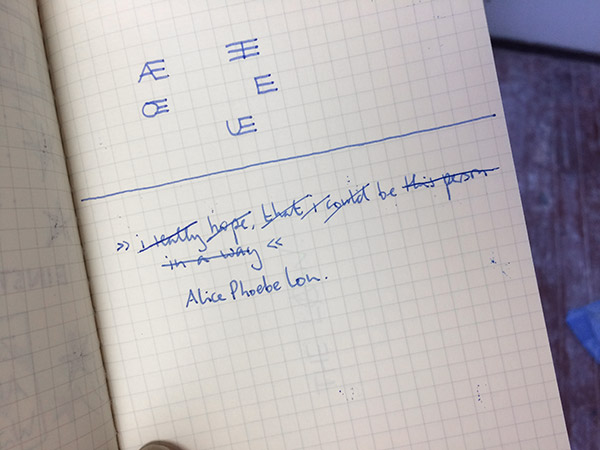 Æ
Œ
E
UE
» i really hope, that i could be this person
in a way «
Alice Phoebe Lou.